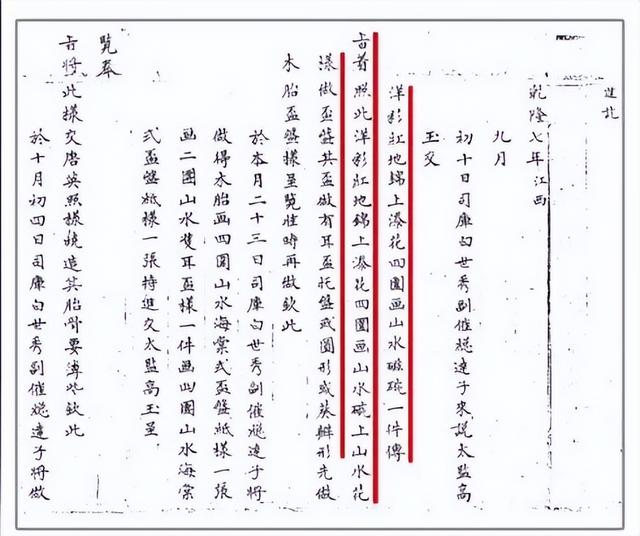 乾隆七年 江西
九月
初十日司庫白世秀副催總達子來說太監高
玉交
洋彩紅地錦上添花四團画山水磁碗一件傳
旨着照此洋彩紅地錦上添花四團画山水碗上山水花
樣做盃盤其盃做有耳盃托盤或圓形或葵瓣形先做
木胎盃盤樣呈覽准時再做欽此
於本月二十三日司庫白世秀副催總達子將
做得木胎画四團山水海棠式盃盤紙樣一張
画二團山水雙耳盃樣一件画四團山水海棠
式盃盤紙樣一張持進交太監高玉呈
覽奉
旨將此樣交唐英照樣燒造其胎骨要薄些欽此
於十月初四日司庫白世秀副催總達子將做